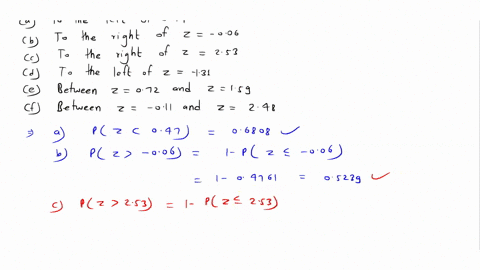 (b) To the right of z = -0.06
(c) To the right of z = 2.53
(d) To the left of z = -1.31
(e) Between z = 0.72 and z = 1.59
(f) Between z = -0.11 and z = 2.48
⇒ a) P(z < 0.47) = 0.6808 ✓
b) P(z > -0.06) = 1 - P(z ≤ -0.06)
= 1 - 0.4761 = 0.5239 ✓
c) P(z > 2.53) = 1 - P(z ≤ 2.53)